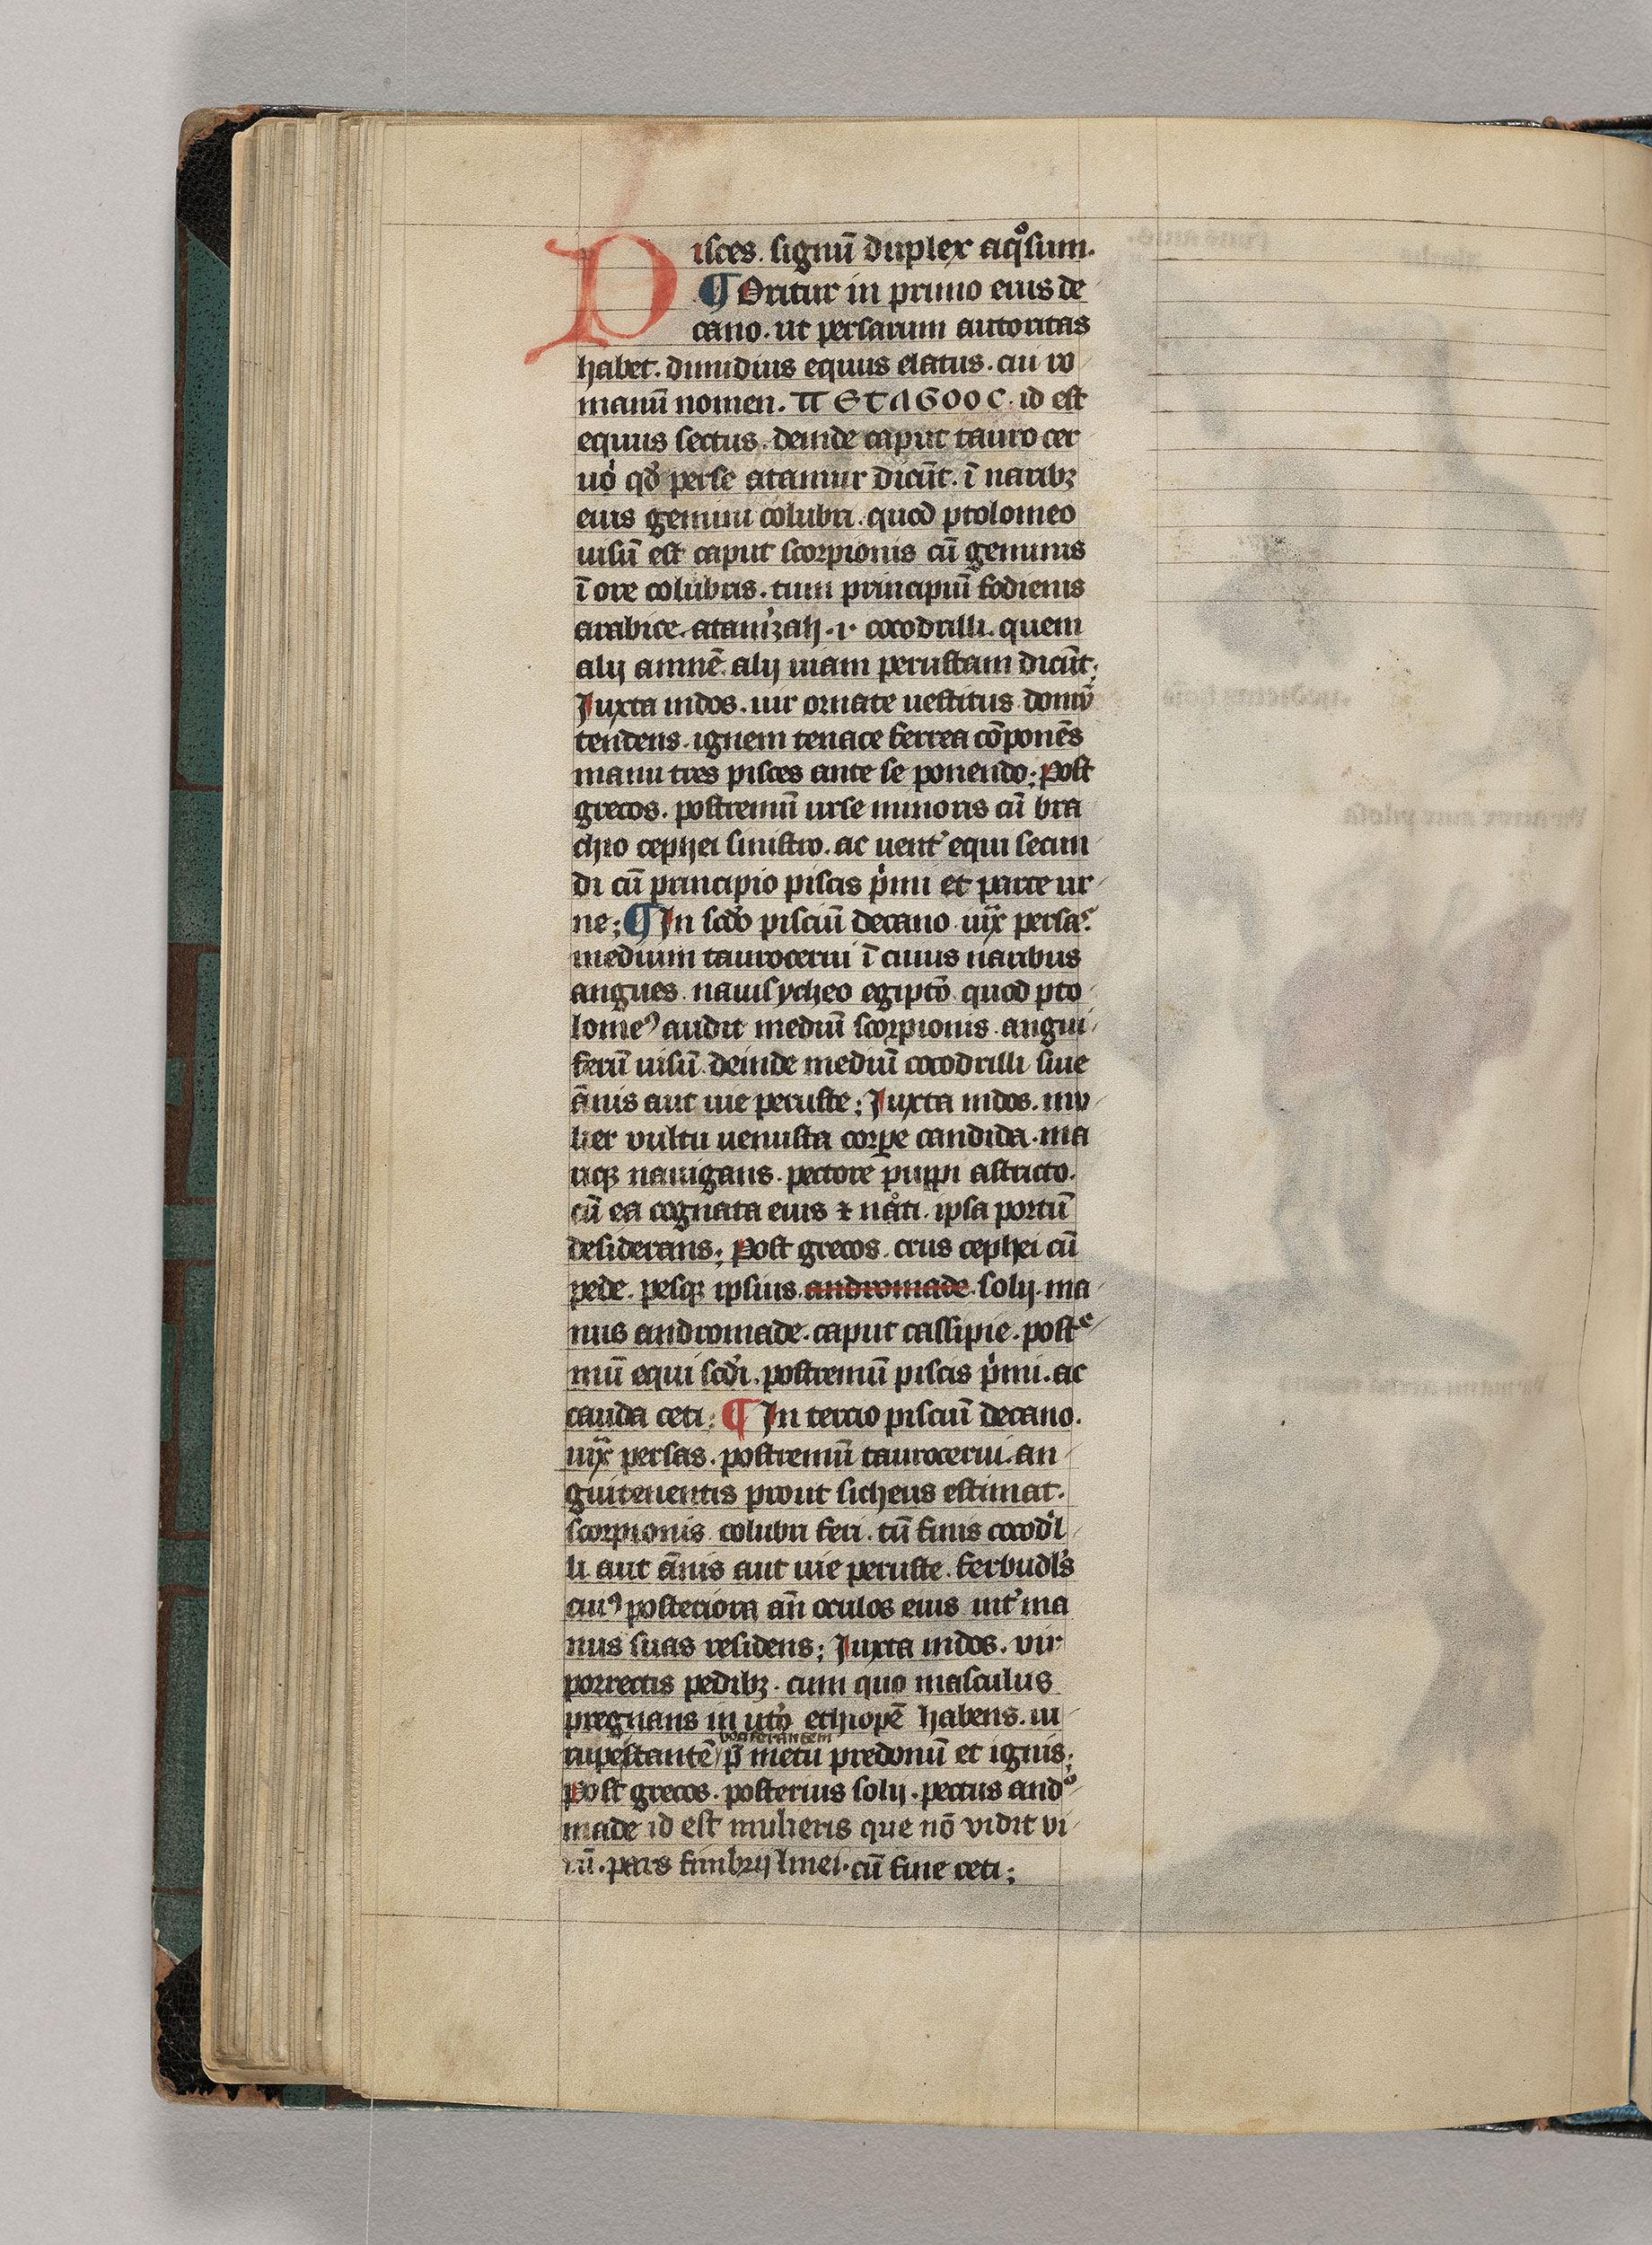 Pisces. signū duplex aqͦsum.
¶ Oritur in primo eius de
cano. ut persarum autoritas
habet. dimidius equus elatus. cui ro
manū nomen. ΠЄΤΑGOOC. id est
equus sectus. deinde caput tauro cer
uo qđ perse atamur dicūt. ī naribꝫ
eius gemini colubri. quod ptolomeo
uisū est caput scorpionis cū geminis
ī ore colubris. tum principiū fodienis
arabice. atanizah .i. cocodrilli. quem
alij amnē alij uiam perustam dicūt;
Juxta indos. uir ornate uestitus domū
tendens. ignem tenace ferrea cōponēs
manu tres pisces ante se ponendo; Post
grecos. postremū urse minoris cū bra
chio cephei sinistro. ac uent͛ equi secun
di cū principio piscis p̍mi et parte ur
ne; ¶ In scđo pisciū decano iux͛ persas.
medium taurocerui ī cuius naribus
angues. nauisycheo egiptō quod pto
lomeꝰ audit mediū scorpionis. angui
ferū uisū. deinde mediū cocodrilli siue
āmis aut uie peruste; Juxta indos. mu
lier vultu uenusta corpe candida. ma
riqꝫ nauigans. pectore puppi astricto.
cū ea cognata eius ⁊ nati. ipsa portū
desiderans; Post grecos. crus cephei cū
pede. pesqꝫ ipsius. andromade. solij. ma
nus andromade. caput cassipie. postͤ
mū equi scđi. postremū piscis p̍mi. ac
cauda ceti; ¶ In tercio pisciū decano.
iux͛ persas. postremū taurocerui. an
guitenentis prout sicheus estimat.
scorpionis colubri feri. tū finis cocod̍l
li aut āmis aut uie peruste. ferbudl̍s
cuiꝰ posteriora añ oculos eius int͛ ma
nus suas residens; Juxta indos. vir
porrectis pedibꝫ. cum quo masculus
pregnans in ut͛o ethiopē habens. in
rupe stantē
p̄ metu predonū et ignis;
Post grecos. posterius solij. pectus andͦ
made id est mulieris que nō vidit vi
rū. pars fimbrij linei. cū fine ceti;